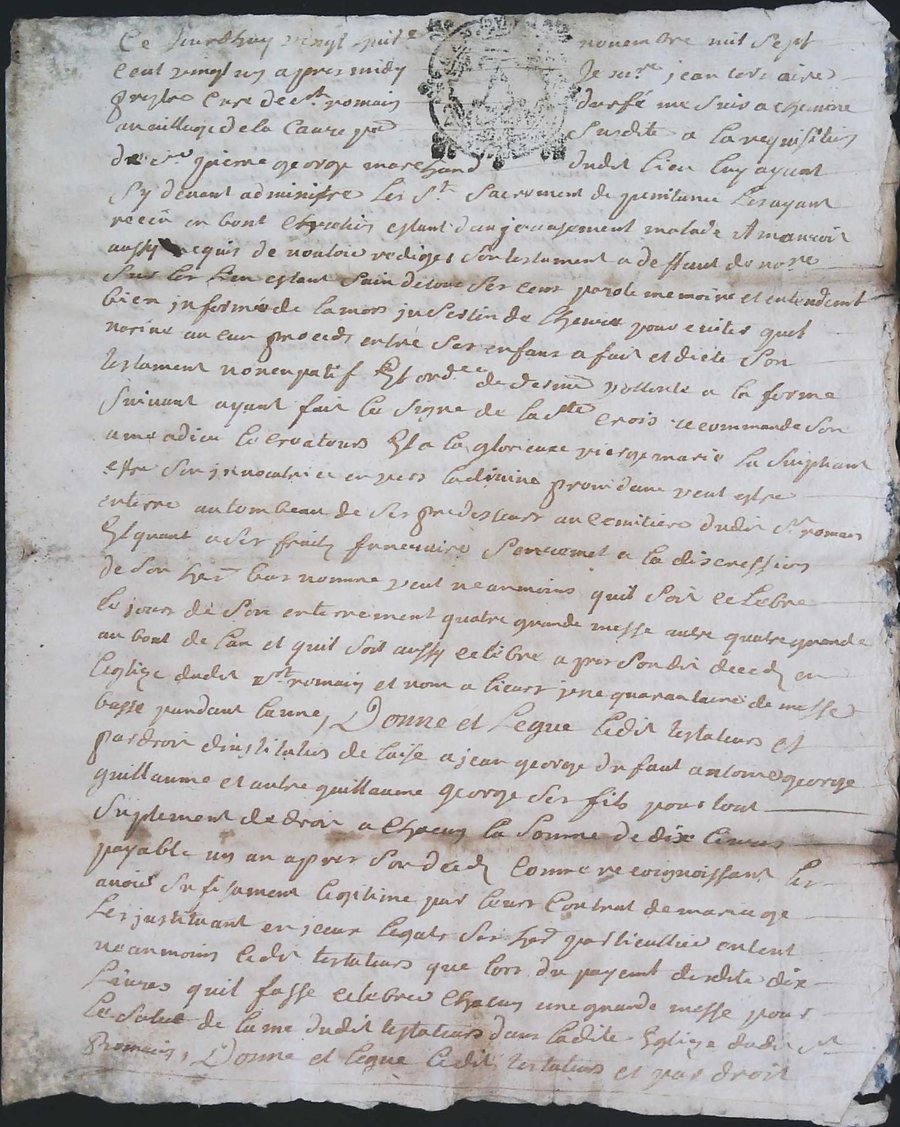 Ce Jourdhuy vingt huit novembre mil Sept
Cent vingt un apres midy Je jean
prestre Cure de St romain durfé me Suis achemine
au village de la Susdite a la requisition
de Sr pierre george marchand dudit lieu luy ayant
Sy devant administre Les St Sacrement de penitance Les ayant
receu en bont estant dangereusement malade
aussy requis de vouloir rediger Son testament a deffaut de nore
estant Sain de tous Ses Cens parole memoire et entendemt
bien informé de la mort de Lheure pour eviter quil
norine aucun proces entre Ses enfans a fait et dicte Son
testament noncupatif Et ordce de derniere vollonte a la forme
Suivant ayant fait le Signe de la Ste Crois recommande Son
ame a dieu le Createurs Et a la glorieuse vierge marie la Supliant
estre Son invocatrice envers la divine providance veut estre
enterre au tombeau de Ses predesseurs au Cemitiere dudit St romain
Et quant a Ses fraits funeraire Sen remet a la discression
de Son her bas nomme veut neanmoins quil Soit celebre
le jours de Son enterrement quatre grande messe autre quatre grande
au bout de lan et quil Soit aussy celebre apres Sondit deced en
leglize dudit St romain et non alieurs une quarantaine de messe
basse pandant lanne, Donne et Legue Ledit testateurs et
par droit dinstitution de laise a jean george antoine george
guillaume et autre guillaume george Ses fils pour tout
Suplement de droit a Chacun la Somme de dix Livres
payable un an apres Son deced Comme recoignoissant les
avoir Sufisament legitime par leurs Contrat de mariage
Les instituant en yceux legats Ses her particullier entent
neanmoins Ledit testateurs que lors du payemt desdite dix
Livres quil fasse celebre Chacun une grande messe pour
Le Salut de lame dudit testateurs dans ladite Eglize dudit St
Romain, Donne et legue Ledit testateurs et par droit